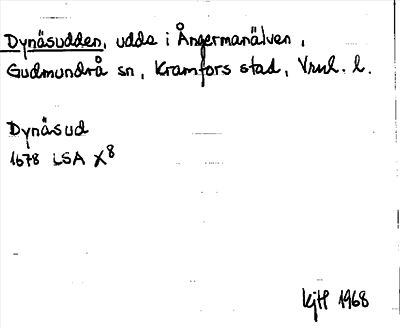 Dynäsudden, udde i Ångermanälven,
Gudmundrå sn, Kramfors stad, Vnrl. l.
Dynäsud
1678 LSA X8
KjH 1968